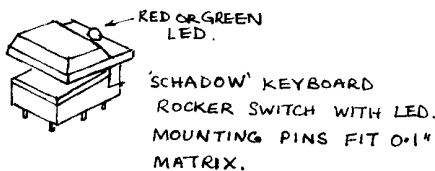 RED OR GREEN
LED.
'SCHADOW' KEYBOARD
ROCKER SWITCH WITH LED.
MOUNTING PINS FIT 0.1"
MATRIX.